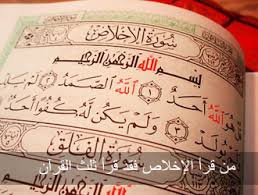 سُورَةُ الإِخْلَاصِ
بِسْمِ اللَّهِ الرَّحْمَٰنِ الرَّحِيمِ
هُوَ اللَّهُ أَحَدٌ ١ اللَّهُ الصَّمَدُ ٢ لَمْ
٣ وَلَمْ يَكُن لَّهُ كُفُوًا أَحَدٌ
سُورَةُ الفَلَقِ
من قرأ الإخلاص فقد قرأ ثلث القرآن